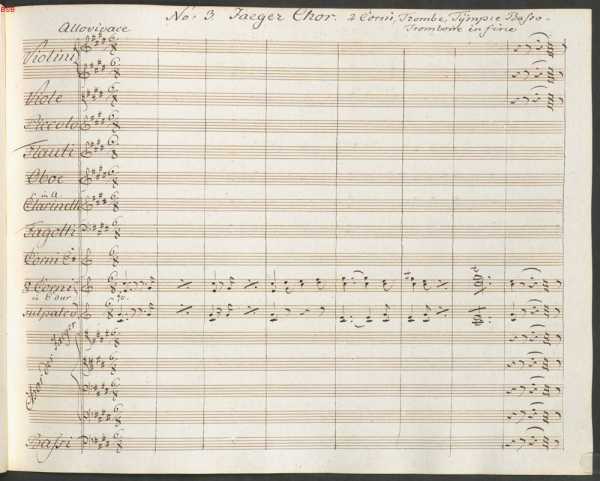 No. 3. Jaeger Chor. 2 Corni, Trombe, Tympie Basso-
Trombone in fine
Allo vivace
Violini
Viole
Piccolo
Flauti
Oboe
in A.
Clarinetti
Fagotti
Corni E
4 Corni
in E dur
sul palco
Chor der Jaeger
Bassi